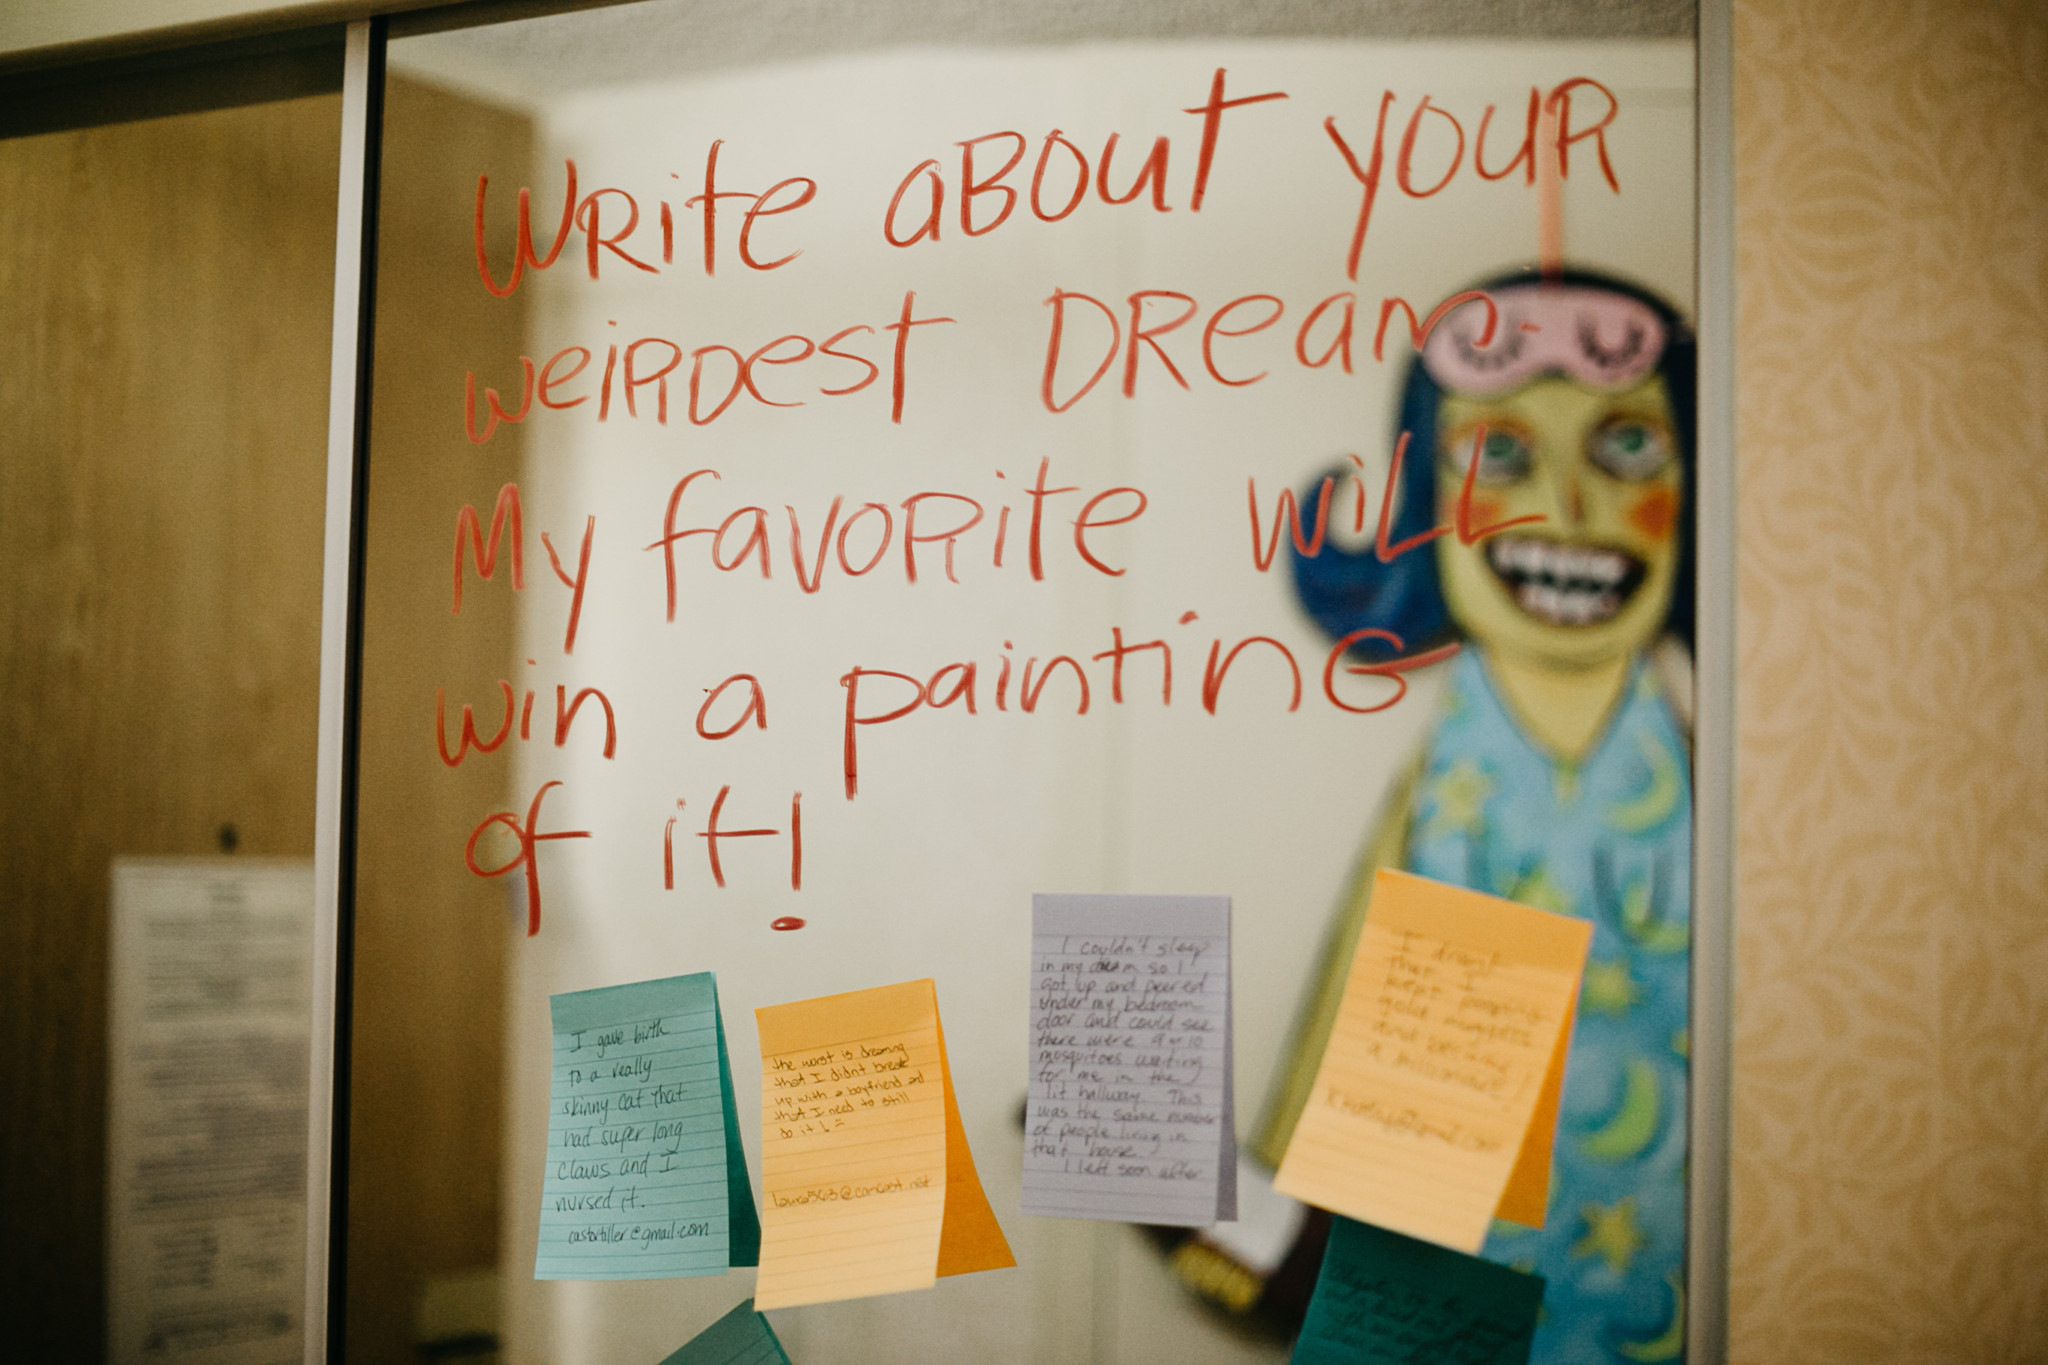 Write about your
weirdest Dream.
My favorite will
win a painting
of it!
I gave birth
to a really
skinny cat that
had super long
claws and I
nursed it.
castortiller@gmail.com
the worst is dreaming
that I didn't break
up with a boyfriend and
that I need to still
do it!
I couldn't sleep
in my dream so I
got up and peered
under my bedroom
door and could see
there were 9 or 10
mosquitoes waiting
for me in the
lit hallway. This
was the same number
of people living in
that house.
I left soon after
I dreamt
that I
kept pooping
gold nuggets
and became
a millionaire!